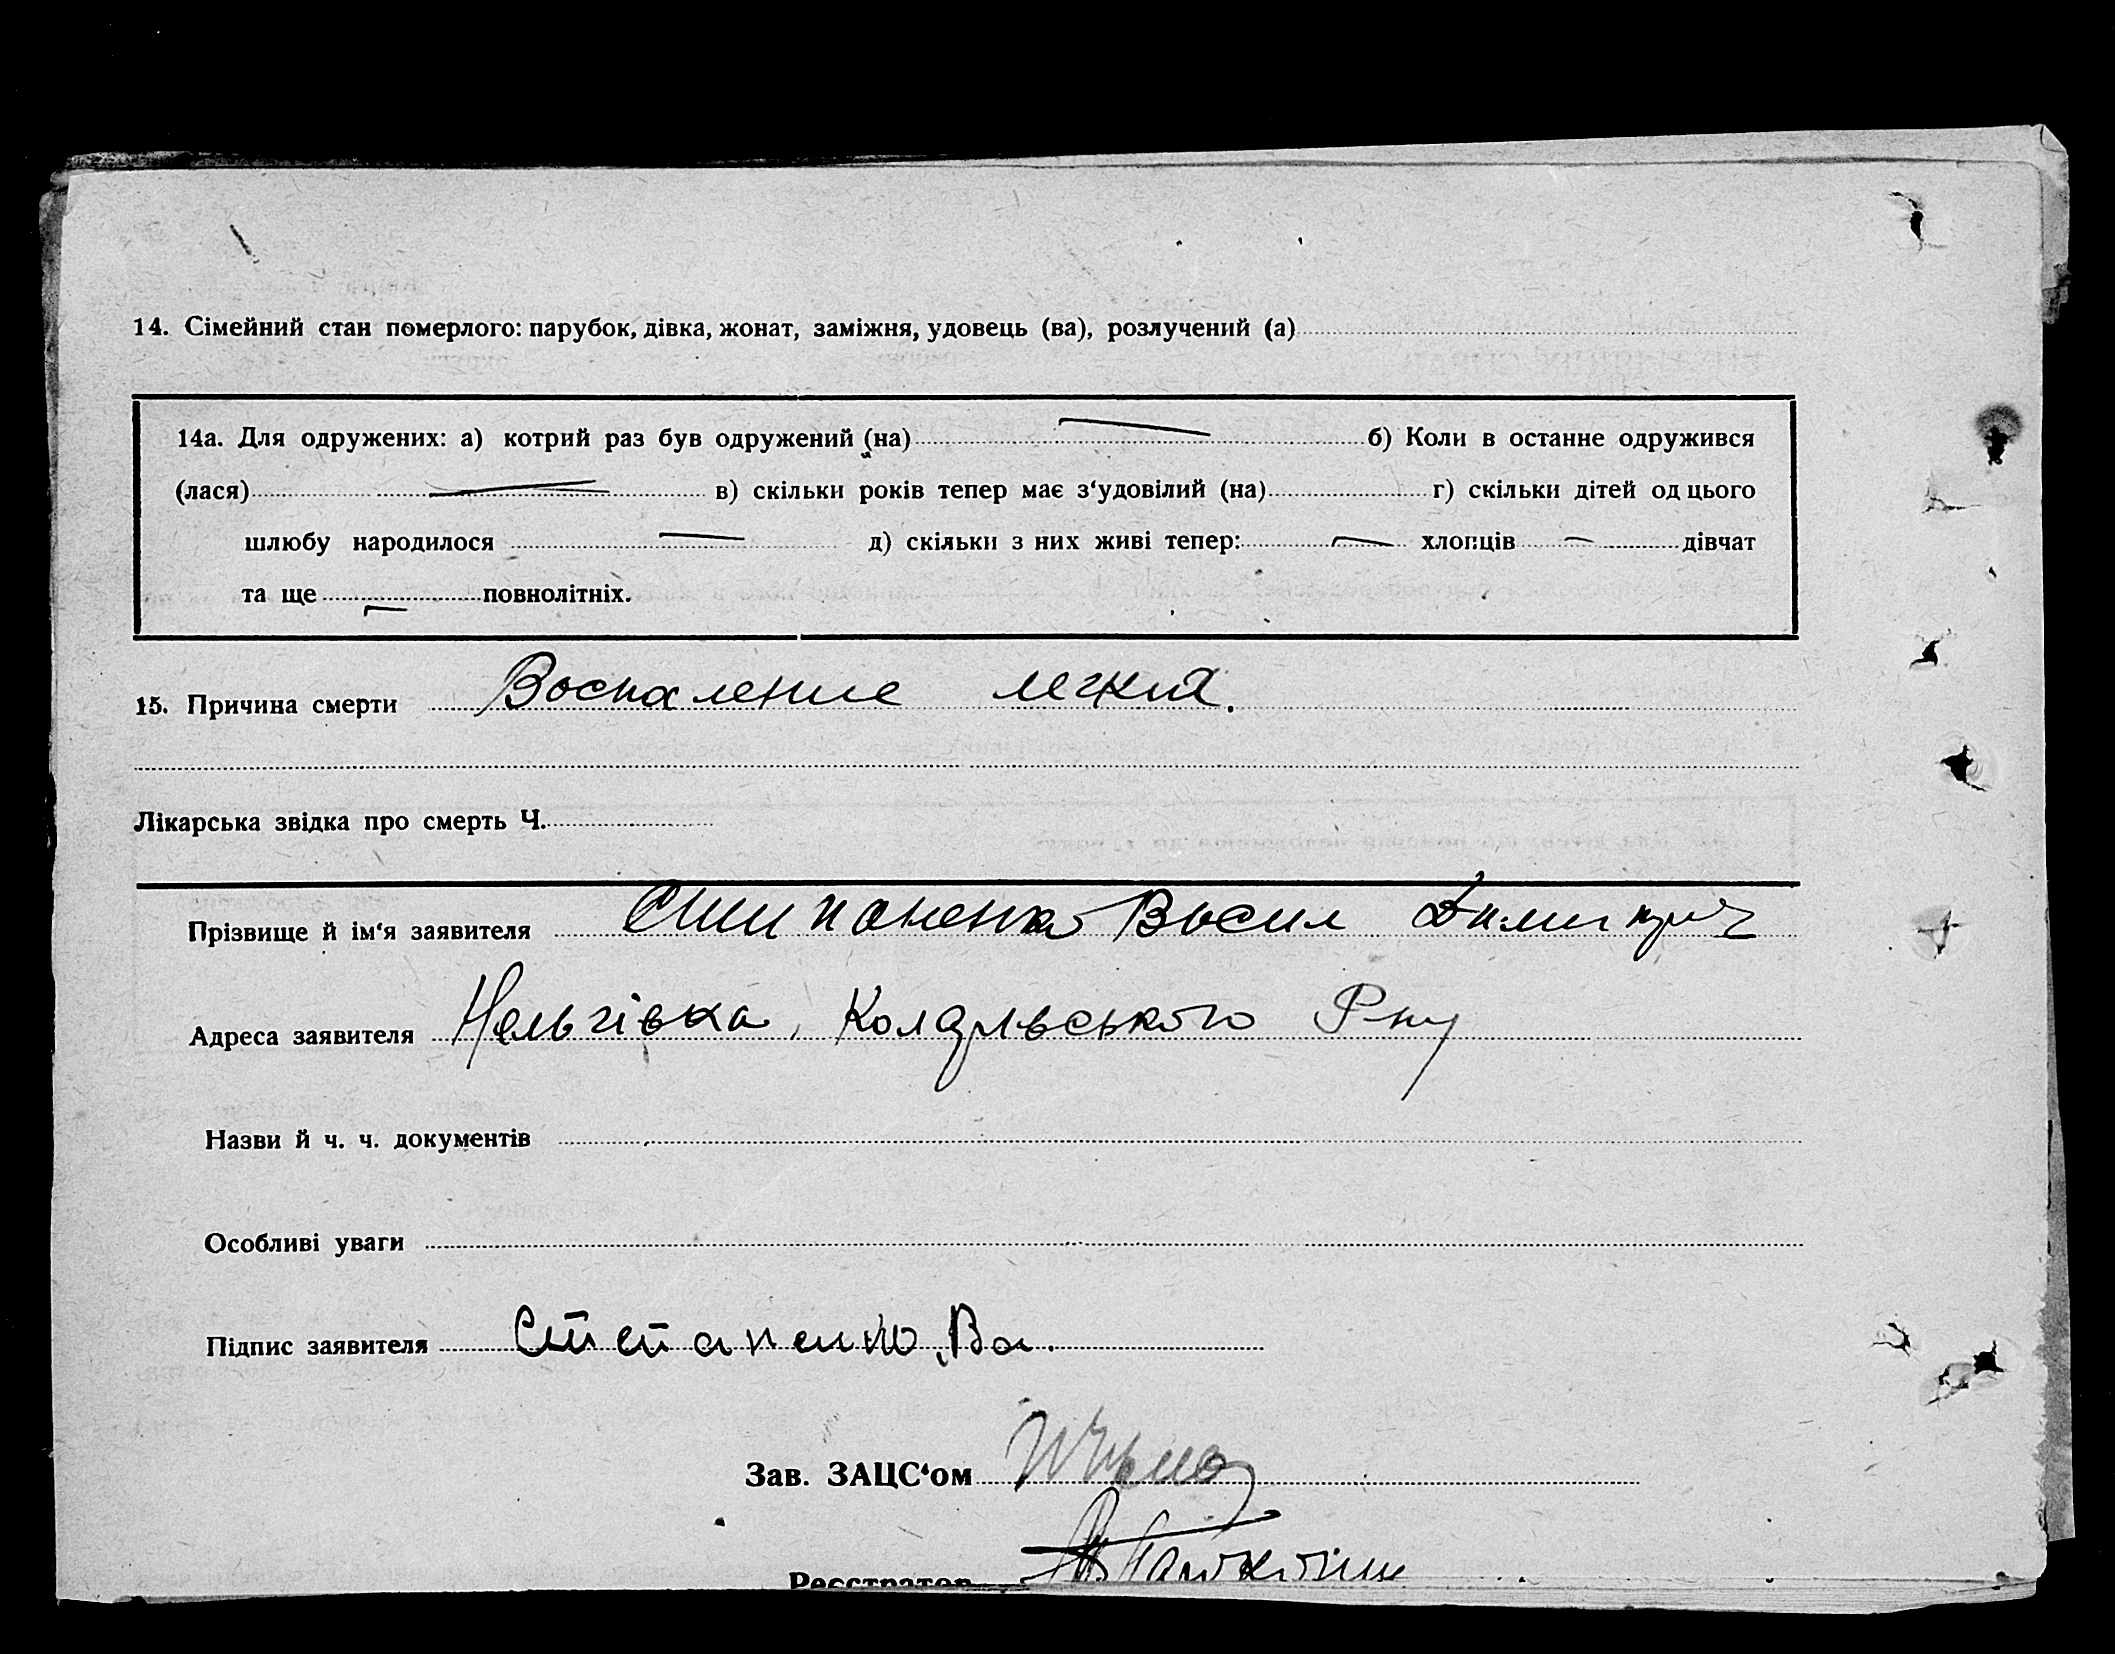 14. Сімейний стан померлого: парубок, дівка, жонат, заміжня, удовець (ва), розлучений (а)
14а. Для одружених: а) котрий раз був одружений (на) б) Коли в останне одружився
(лася) в) скільки років тепер має з‘удовілий (на) г) скільки дітей од цього
шлюбу народилося д) скільки з них живі тепер: хлопців дівчат
та ще повнолітніх.
15. Причина смерти Воспаление легких.
Лікарська звідка про смерть Ч.
Прізвище й ім‘я заявителя
Адреса заявителя Нельгівка,
Назви й ч. ч. документів
Особливі уваги
Підпис заявителя Степаненко, Ва.
Зав. ЗАЦС‘ом
Реєстратор